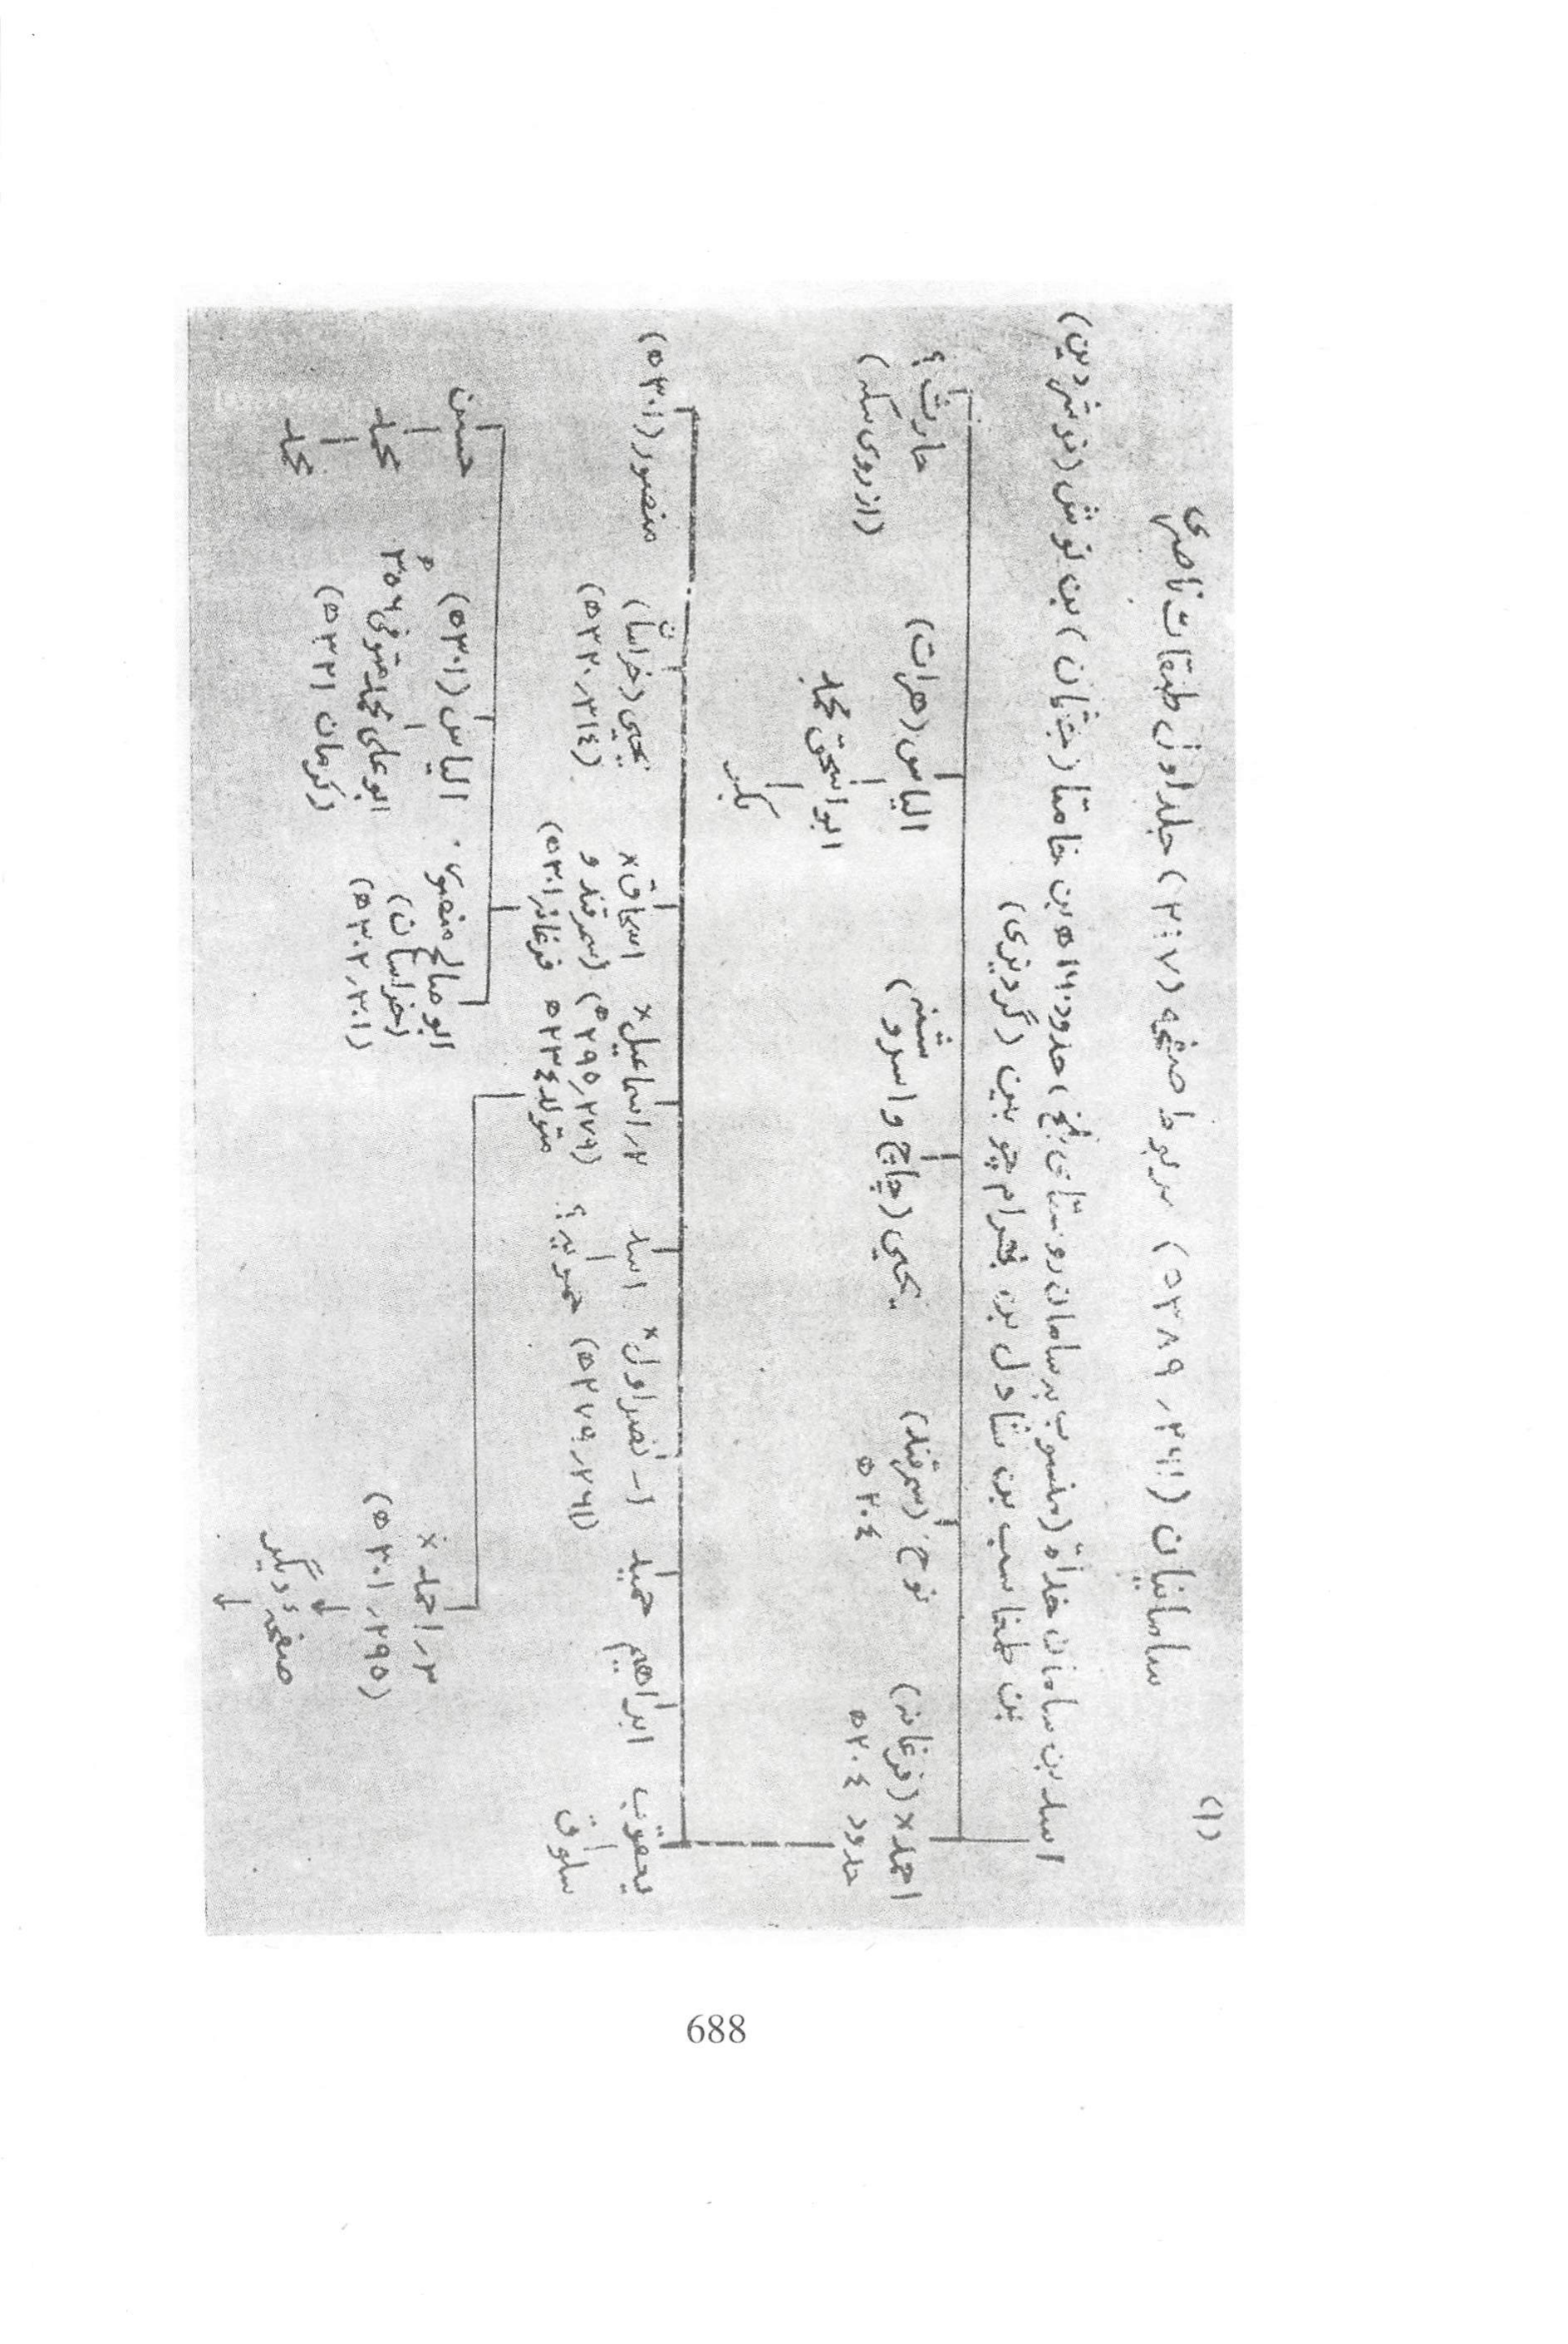 (۱)
سامانیان (۲۶۱ر ۳۸۹ ه) مربوط صفحه (۲۰۷) جلد اول طبقات ناصری
اسد بن سامان خداة (منسوب به سامان روستای بلخ) حدود ۱۶۰ ه بن خامتا (جثمان) بن نوش (نوشردین)
بن طغاسب بن شادل بن بهرام چوبین (گردیزی)
احمد × (فرغانه) حدود ۲۰۴ ه
نوح (سمرقند) ۲۰۴ ه
یحیی (چاچ و اسروشنه)
الیاس (هرات)
ابو اسحق محمد
حارث ؟ (از روی سکه)
یعقوب
ابراهیم
حمید
۱ـ نصر اول × (۲۶۱ر۲۷۹ ه)
اسد
حمویه ؟
۲ر اسماعیل × (۲۷۹ر۲۹۵ ه) متولد ۲۳۴ ه
اسحاق × (سمرقند و فرغانه ۳۰۱ ه)
یحیی (خراسان) (۳۱۴ر۳۲۰ ه)
منصور (۳۰۱ ه)
۳ر احمد × (۲۹۵ر۳۰۱ ه)
ابو صالح منصور (خراسان) (۳۰۱ر۳۰۲ ه)
الیاس (۳۰۱ ه)
ابو علی محمد متوفی ۳۵۶ ه
(کرمان ۳۲۱ ه)
حسین
محمد
محمد
صفحهٔ دیگر
688